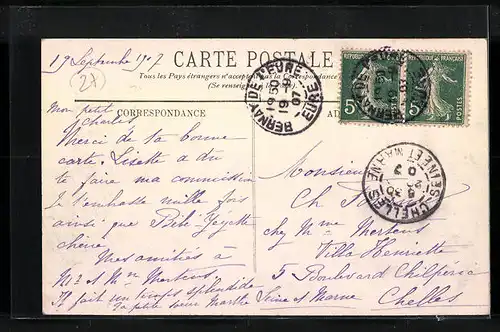 19 Septembre 1907
(27)
CARTE POSTALE
Tous les Pays étrangers n'acceptent pas la Correspondance
(Se renseigner
CORRESPONDANCE
Mon petit
Charles
Merci de ta bonne
carte. Lisette a dû
te faire ma commission
Je t'embrasse mille fois
ainsi que Bébé
chérie.
Mes amitiés à
Mr et Mme Mertens
Il fait un temps splendide
Ta petite sœur Marthe
Monsieur
Ch
chez Mme Mertens
Villa Henriette
5 Boulevard Chilpéric
Chelles
Seine et Marne
BERNAY DE L'EURE
19 50
19 -9
07
EURE
RÉPUBLIQUE FRANÇAISE
5c
POSTES
5c
POSTES
CHELLES
SEINE ET MARNE